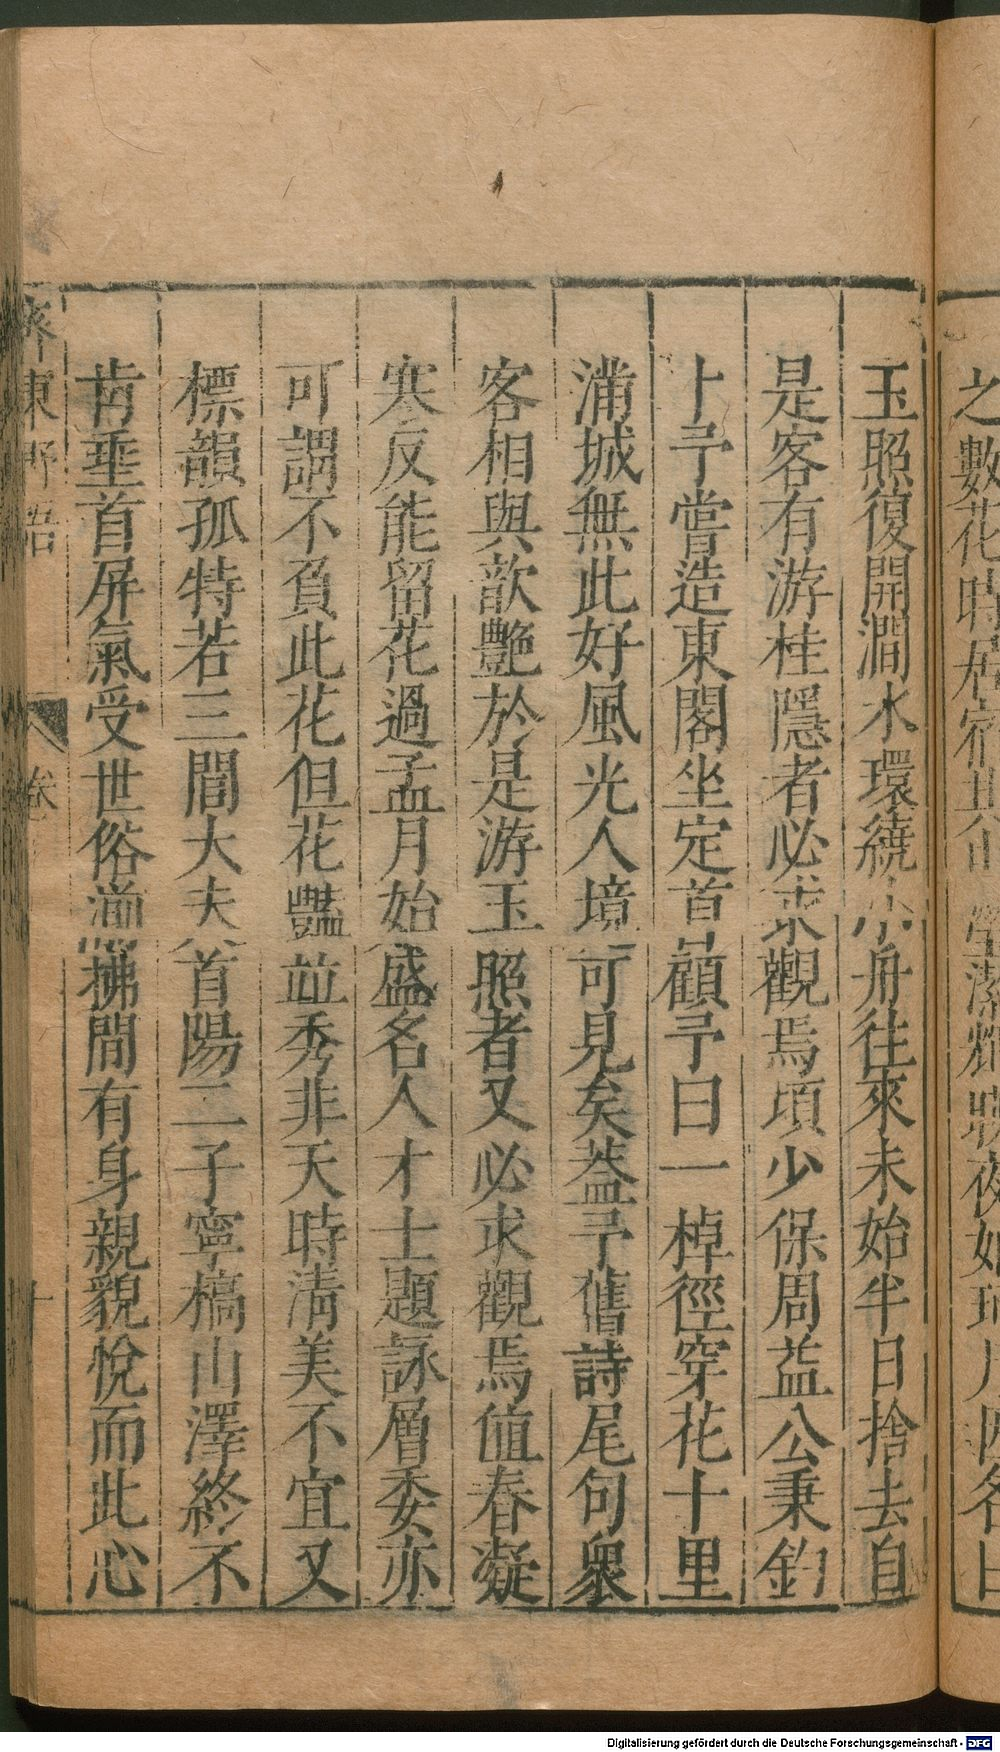 玉照復開澗水環繞小舟往來未始半日捨去自
是客有游桂隱者必求觀焉頃少保周益公秉鈞
予嘗造東閣坐定首顧予曰一棹徑穿花十里
滿城無此好風光人境可見矣蓋予舊詩尾句衆
客相與歆艷於是游玉照者又必求觀焉值春凝
寒反能留花過孟月始盛名人才士題詠層委亦
可謂不負此花但花豔並秀非天時清美不宜又
標韻孤特若三閭大夫首陽二子寧槁山澤終不
肯垂首屏氣受世俗湔拂間有身親貌悅而此心
齊東野語
卷
之數花時居宿其中
夜如
Digitalisierung gefördert durch die Deutsche Forschungsgemeinschaft - DFG